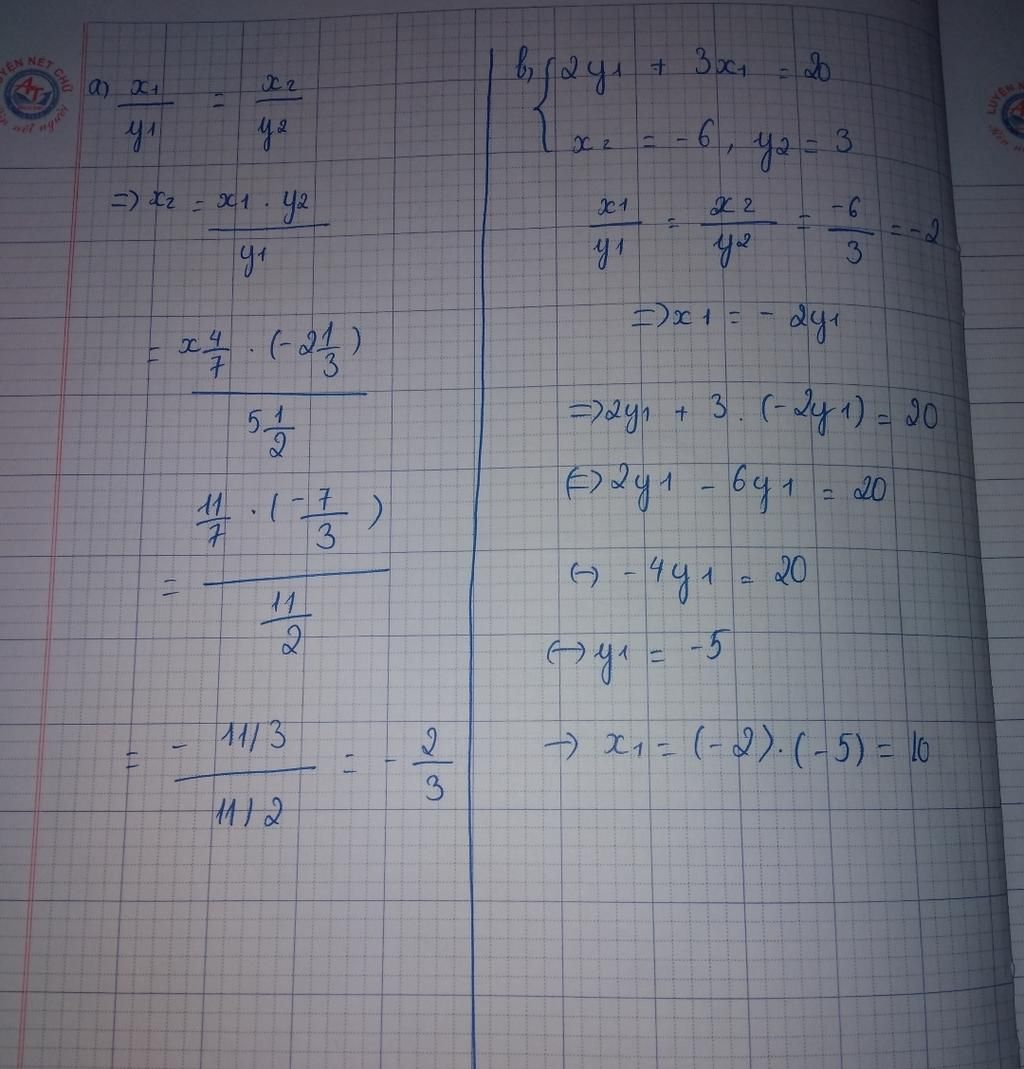 LUYỆN NÉT CHỮ
a) x1/y1 = x2/y2
=> x2 = x1 . y2 / y1
= x 4/7 . (-2 1/3) / 5 1/2
= 11/7 . (-7/3) / 11/2
= - 11/3 / 11/2 = - 2/3
b, { 2y1 + 3x1 = 20
x2 = -6 , y2 = 3
x1/y1 = x2/y2 = -6/3 = -2
=> x1 = - 2y1
=> 2y1 + 3 . (-2y1) = 20
(=) 2y1 - 6y1 = 20
(-) - 4y1 = 20
(->) y1 = -5
-> x1 = (-2).(-5) = 10